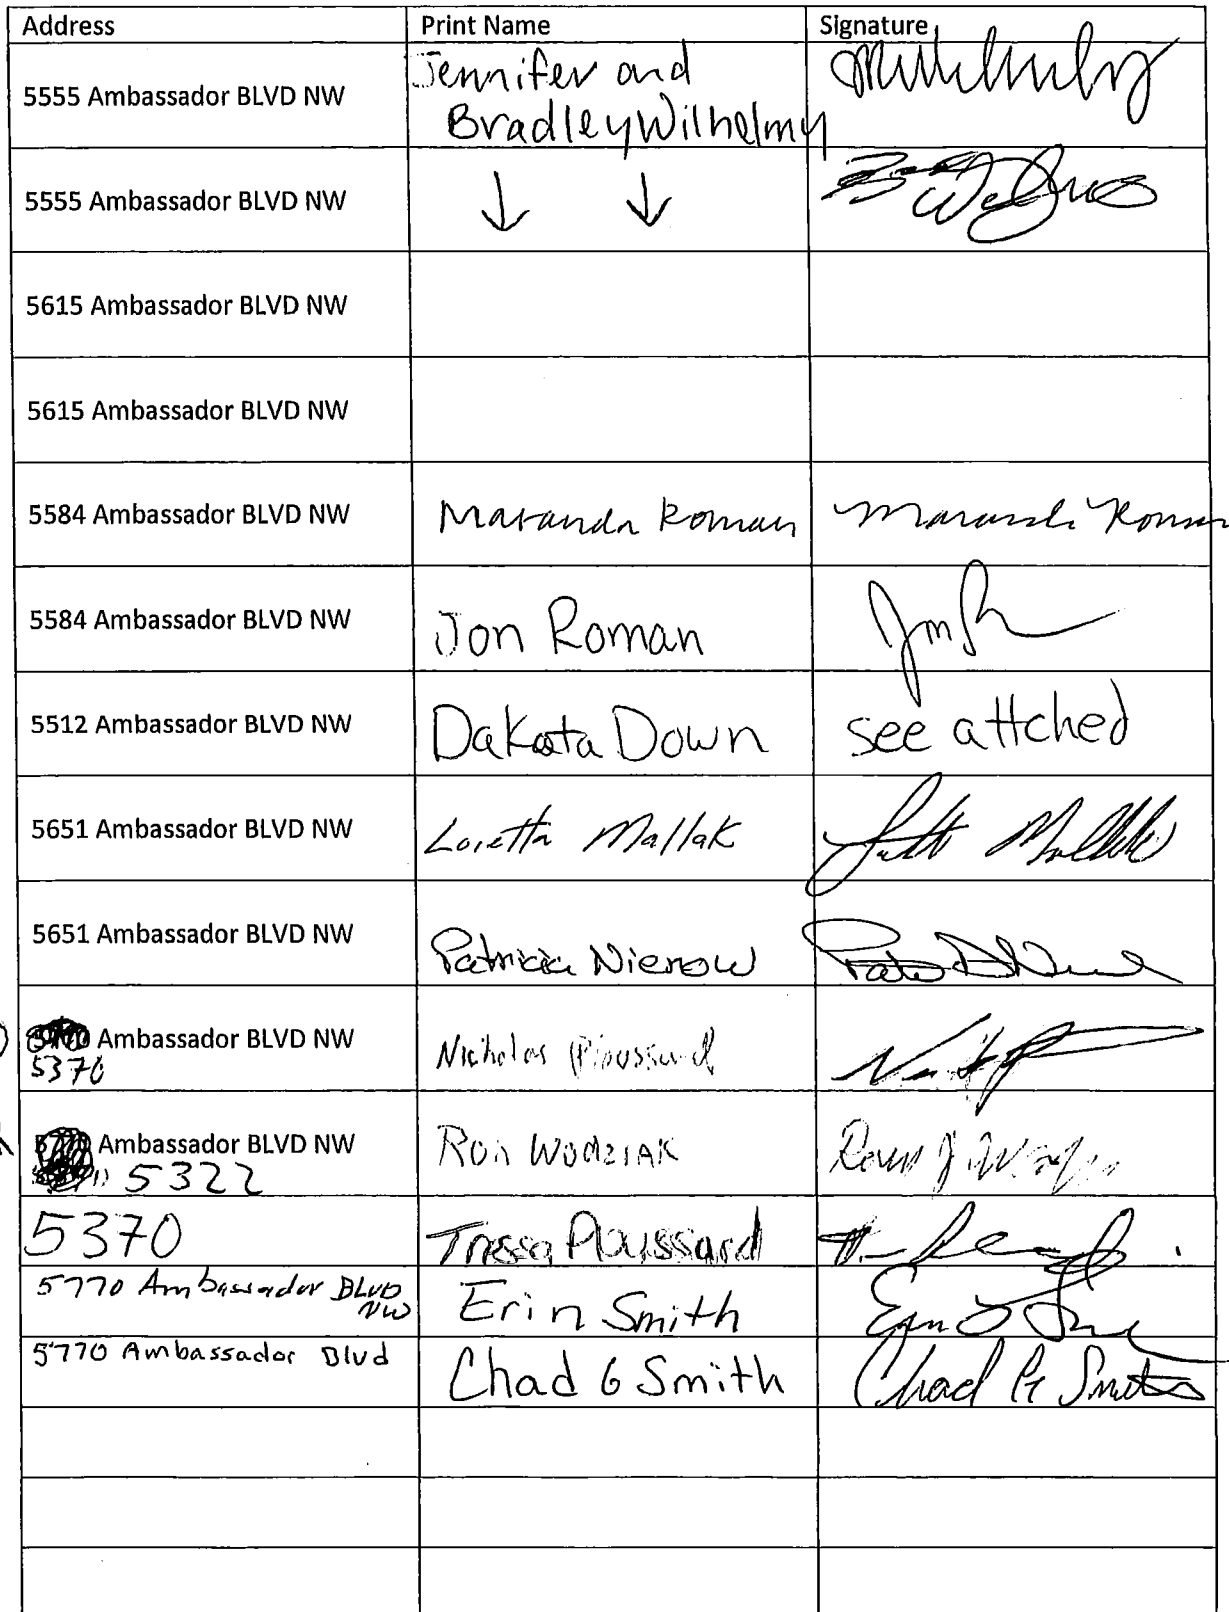 Address Print Name Signature
5555 Ambassador BLVD NW Jennifer and
Bradley Wilhelmy
5555 Ambassador BLVD NW ↓ ↓
5615 Ambassador BLVD NW
5615 Ambassador BLVD NW
5584 Ambassador BLVD NW Maranda Roman Maranda Roman
5584 Ambassador BLVD NW Jon Roman
5512 Ambassador BLVD NW Dakota Down see attched
5651 Ambassador BLVD NW Loretta Mallak
5651 Ambassador BLVD NW Patricia Nierow
Ambassador BLVD NW Nicholas
5370
Ambassador BLVD NW Ron Wodziak
5322
5370 Tressa Ploussard
5770 Ambassador BLVD
NW Erin Smith
5770 Ambassador Blvd Chad G Smith Chad G Smith